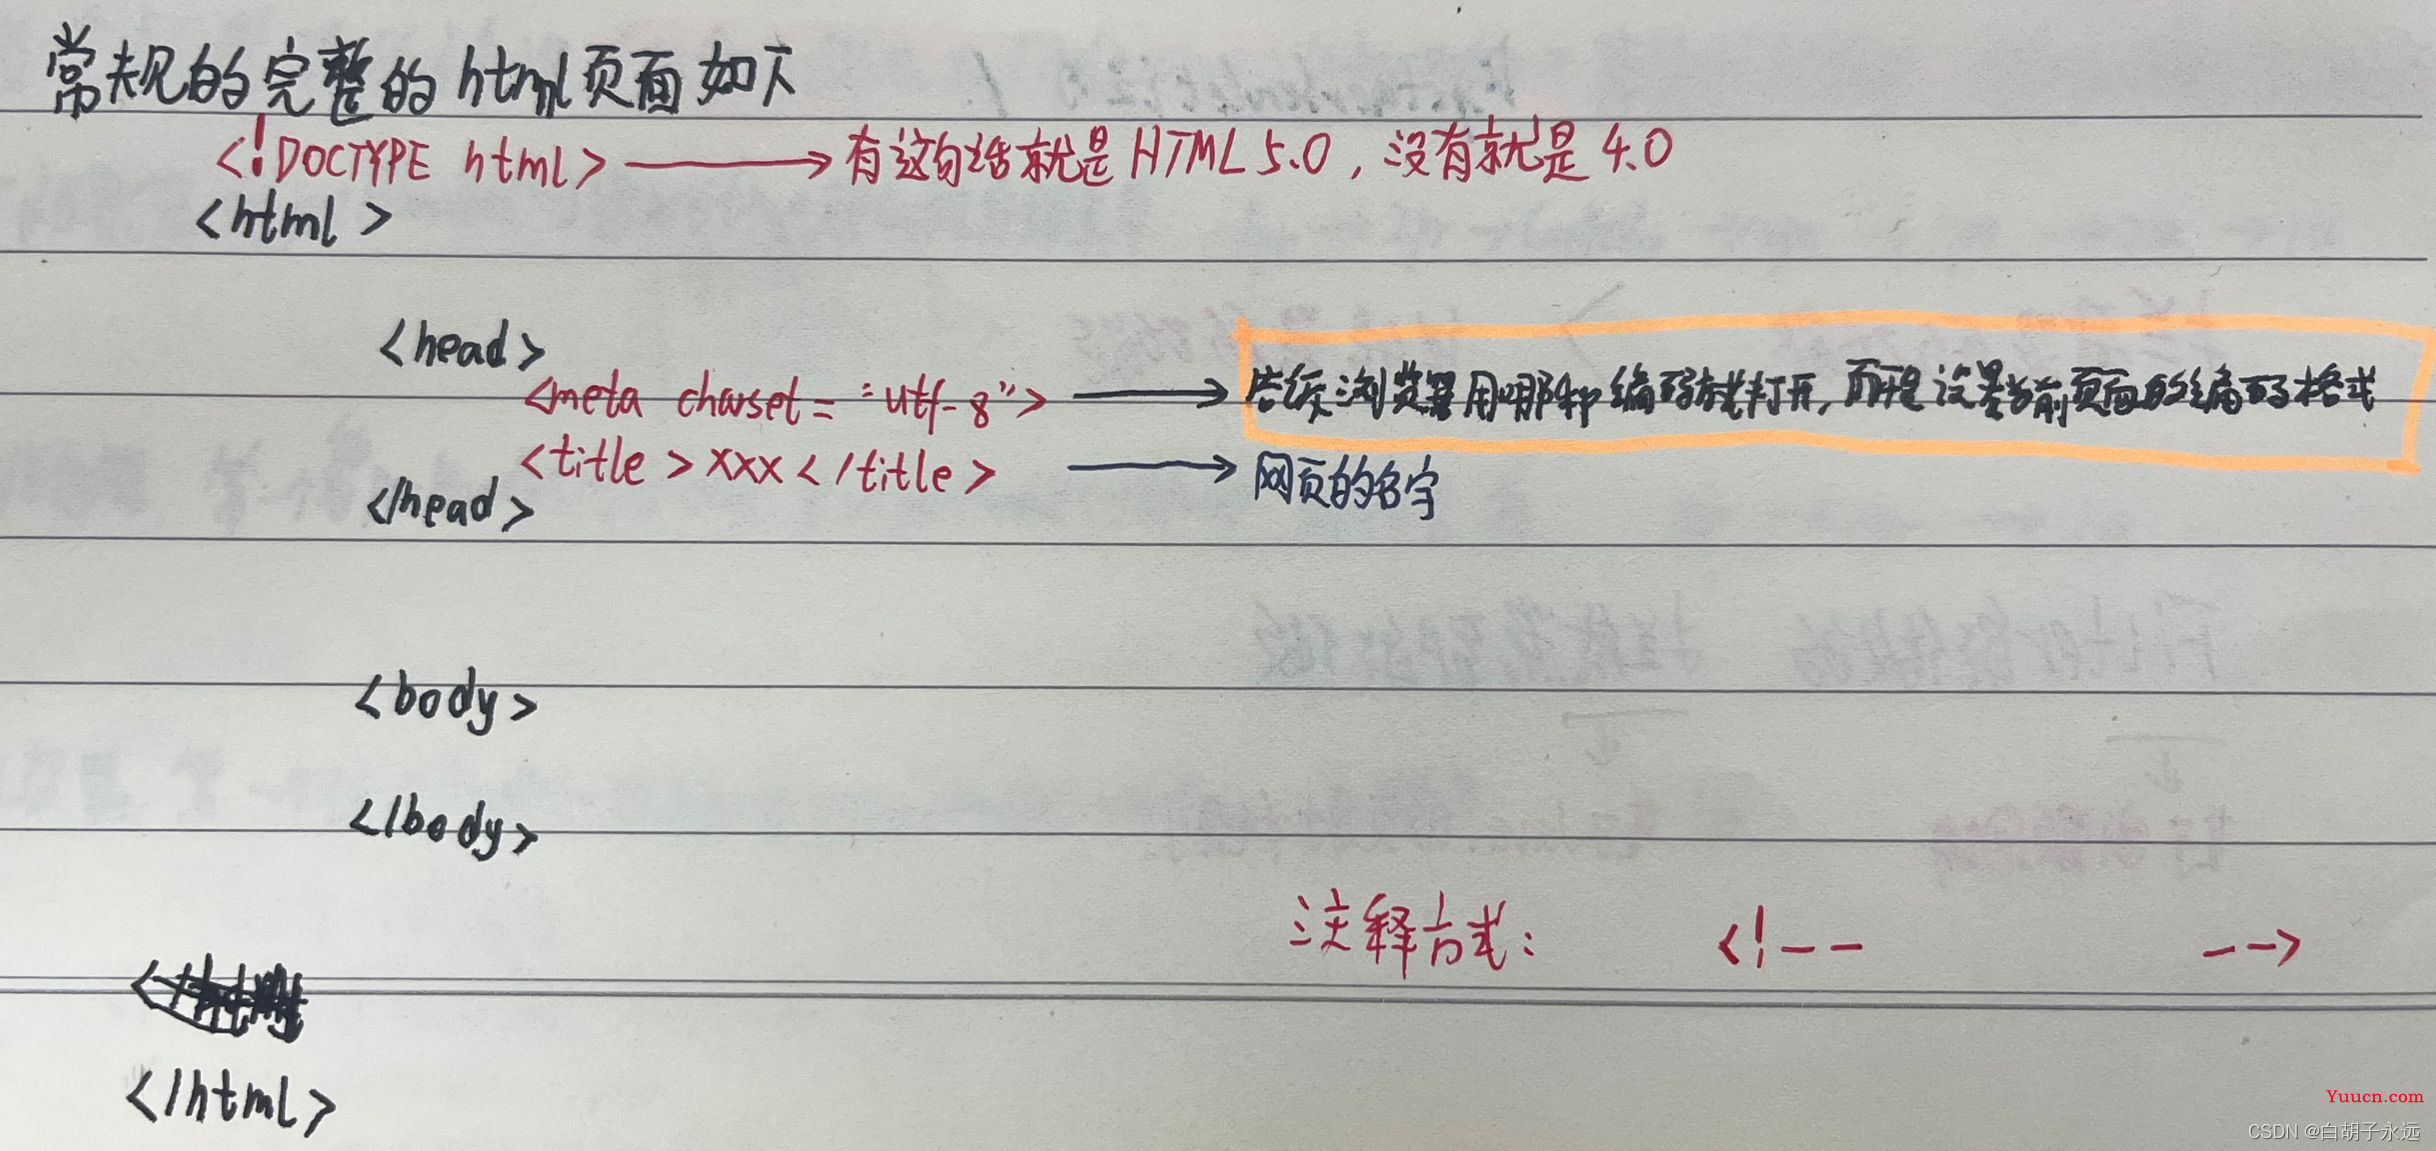 常规的完整的html页面如下
<!DOCTYPE html> 有这句话就是HTML5.0，没有就是4.0
<html>
<head>
<meta charset="utf-8"> 告诉浏览器用哪种编码方式打开，而不是设置当前页面的编码格式
<title>xxx</title> 网页的名字
</head>
<body>
</body>
注释方式： <!-- -->
</html>
Yuucn.com
CSDN @白胡子永远